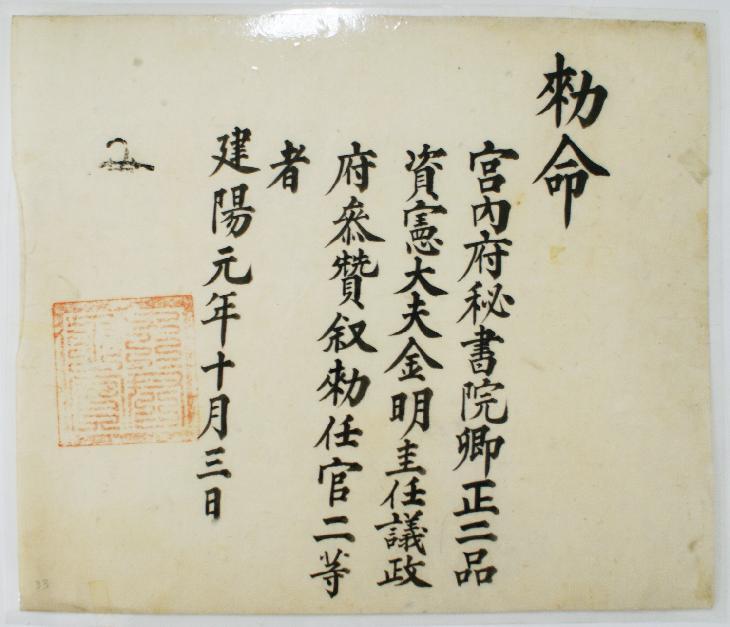 勑命
宮內府秘書院卿正二品
資憲大夫金明圭任議政
府叅贊叙勑任官二等
者
建陽元年十月三日
33